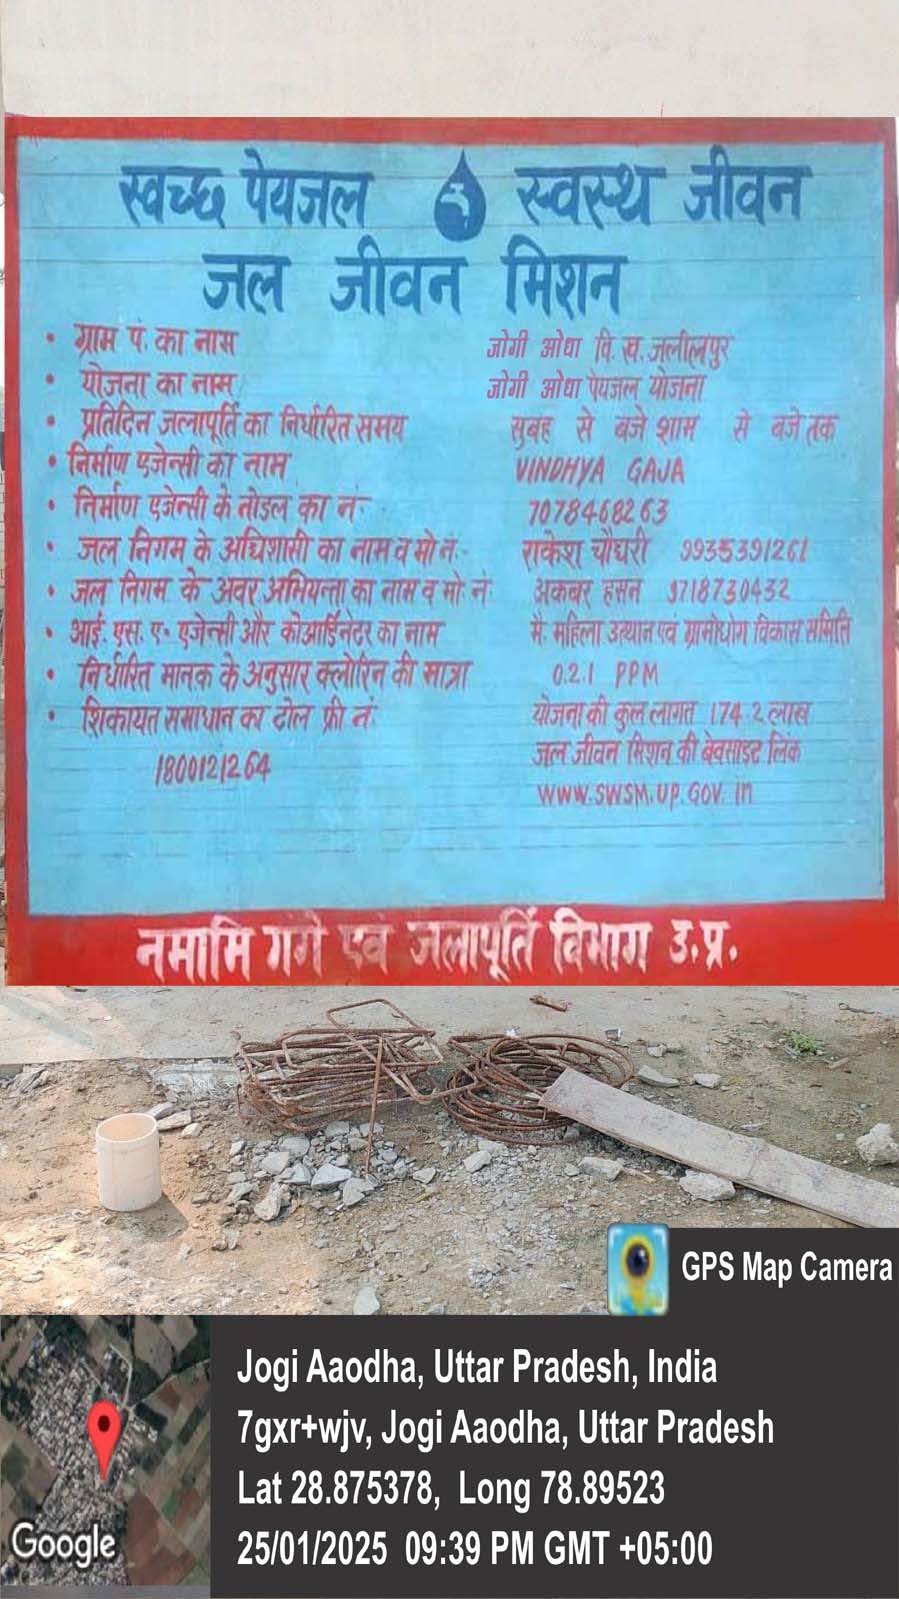 स्वच्छ पेयजल स्वस्थ जीवन
जल जीवन मिशन
• ग्राम पं. का नाम जोगी ओधा वि.ख. जलीलपुर
• योजना का नाम जोगी ओधा पेयजल योजना
• प्रतिदिन जलापूर्ति का निर्धारित समय सुबह से बजे शाम से बजे तक
• निर्माण एजेन्सी का नाम VINDHYA GAJA
• निर्माण एजेन्सी के नोडल का नं- 7078468263
• जल निगम के अधिशासी का नाम व मो नं- राकेश चौधरी 9935391261
• जल निगम के अवर अभियन्ता का नाम व मो नं- अकबर हसन 9718730432
• आई. एस. ए- एजेन्सी और कोआर्डिनेटर का नाम मै- महिला उत्थान एवं ग्रामोधोग विकास समिति
• निर्धारित मानक के अनुसार क्लोरिन की मात्रा 0.2.1 PPM
• शिकायत समाधान का टोल फ्री नं- योजना की कुल लागत 174.2 लाख
1800121264 जल जीवन मिशन की बेवसाइट लिंक
WWW.SWSM.UP.GOV.in
नमामि गंगे एवं जलापूर्ति विभाग उ.प्र.
GPS Map Camera
Jogi Aaodha, Uttar Pradesh, India
7gxr+wjv, Jogi Aaodha, Uttar Pradesh
Lat 28.875378, Long 78.89523
25/01/2025 09:39 PM GMT +05:00
Google